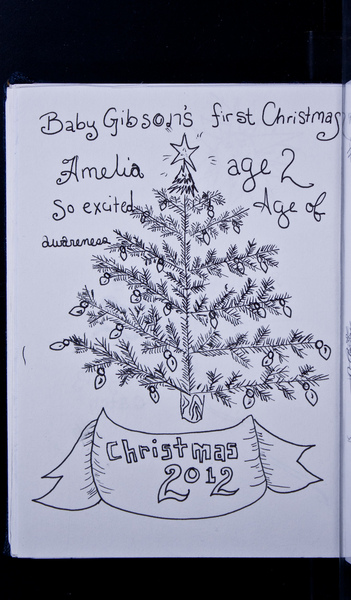 Baby Gibson's first Christmas
Amelia age 2
So excited Age of
awareness
Christmas
2012